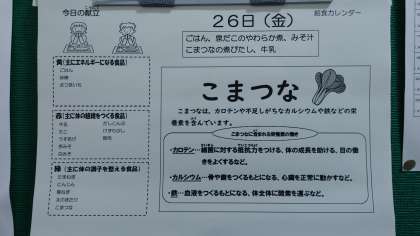 今日の献立
26日(金)
給食カレンダー
ごはん、泉だこのやわらか煮、みそ汁
こまつなの煮びたし、牛乳
黄(主にエネルギーになる食品)
ごはん
砂糖
赤(主に体の組織をつくる食品)
牛乳
たこ
うすあげ
赤みそ
白みそ
だしこんぶ
けずりぶし
緑(主に体の調子を整える食品)
たまねぎ
にんじん
青ねぎ
こまつな
こまつな
こまつなは、カロテンや不足しがちなカルシウムや鉄などの栄
養素を含んでいます。
こまつなに含まれる栄養素の働き
・カロテン…細菌に対する抵抗力をつける、体の成長を助ける、目の働
きをよくするなど。
・カルシウム…骨や歯をつくるもとになる、心臓を正常に動かすなど。
・鉄…血液をつくるもとになる、体全体に酸素を運ぶなど。